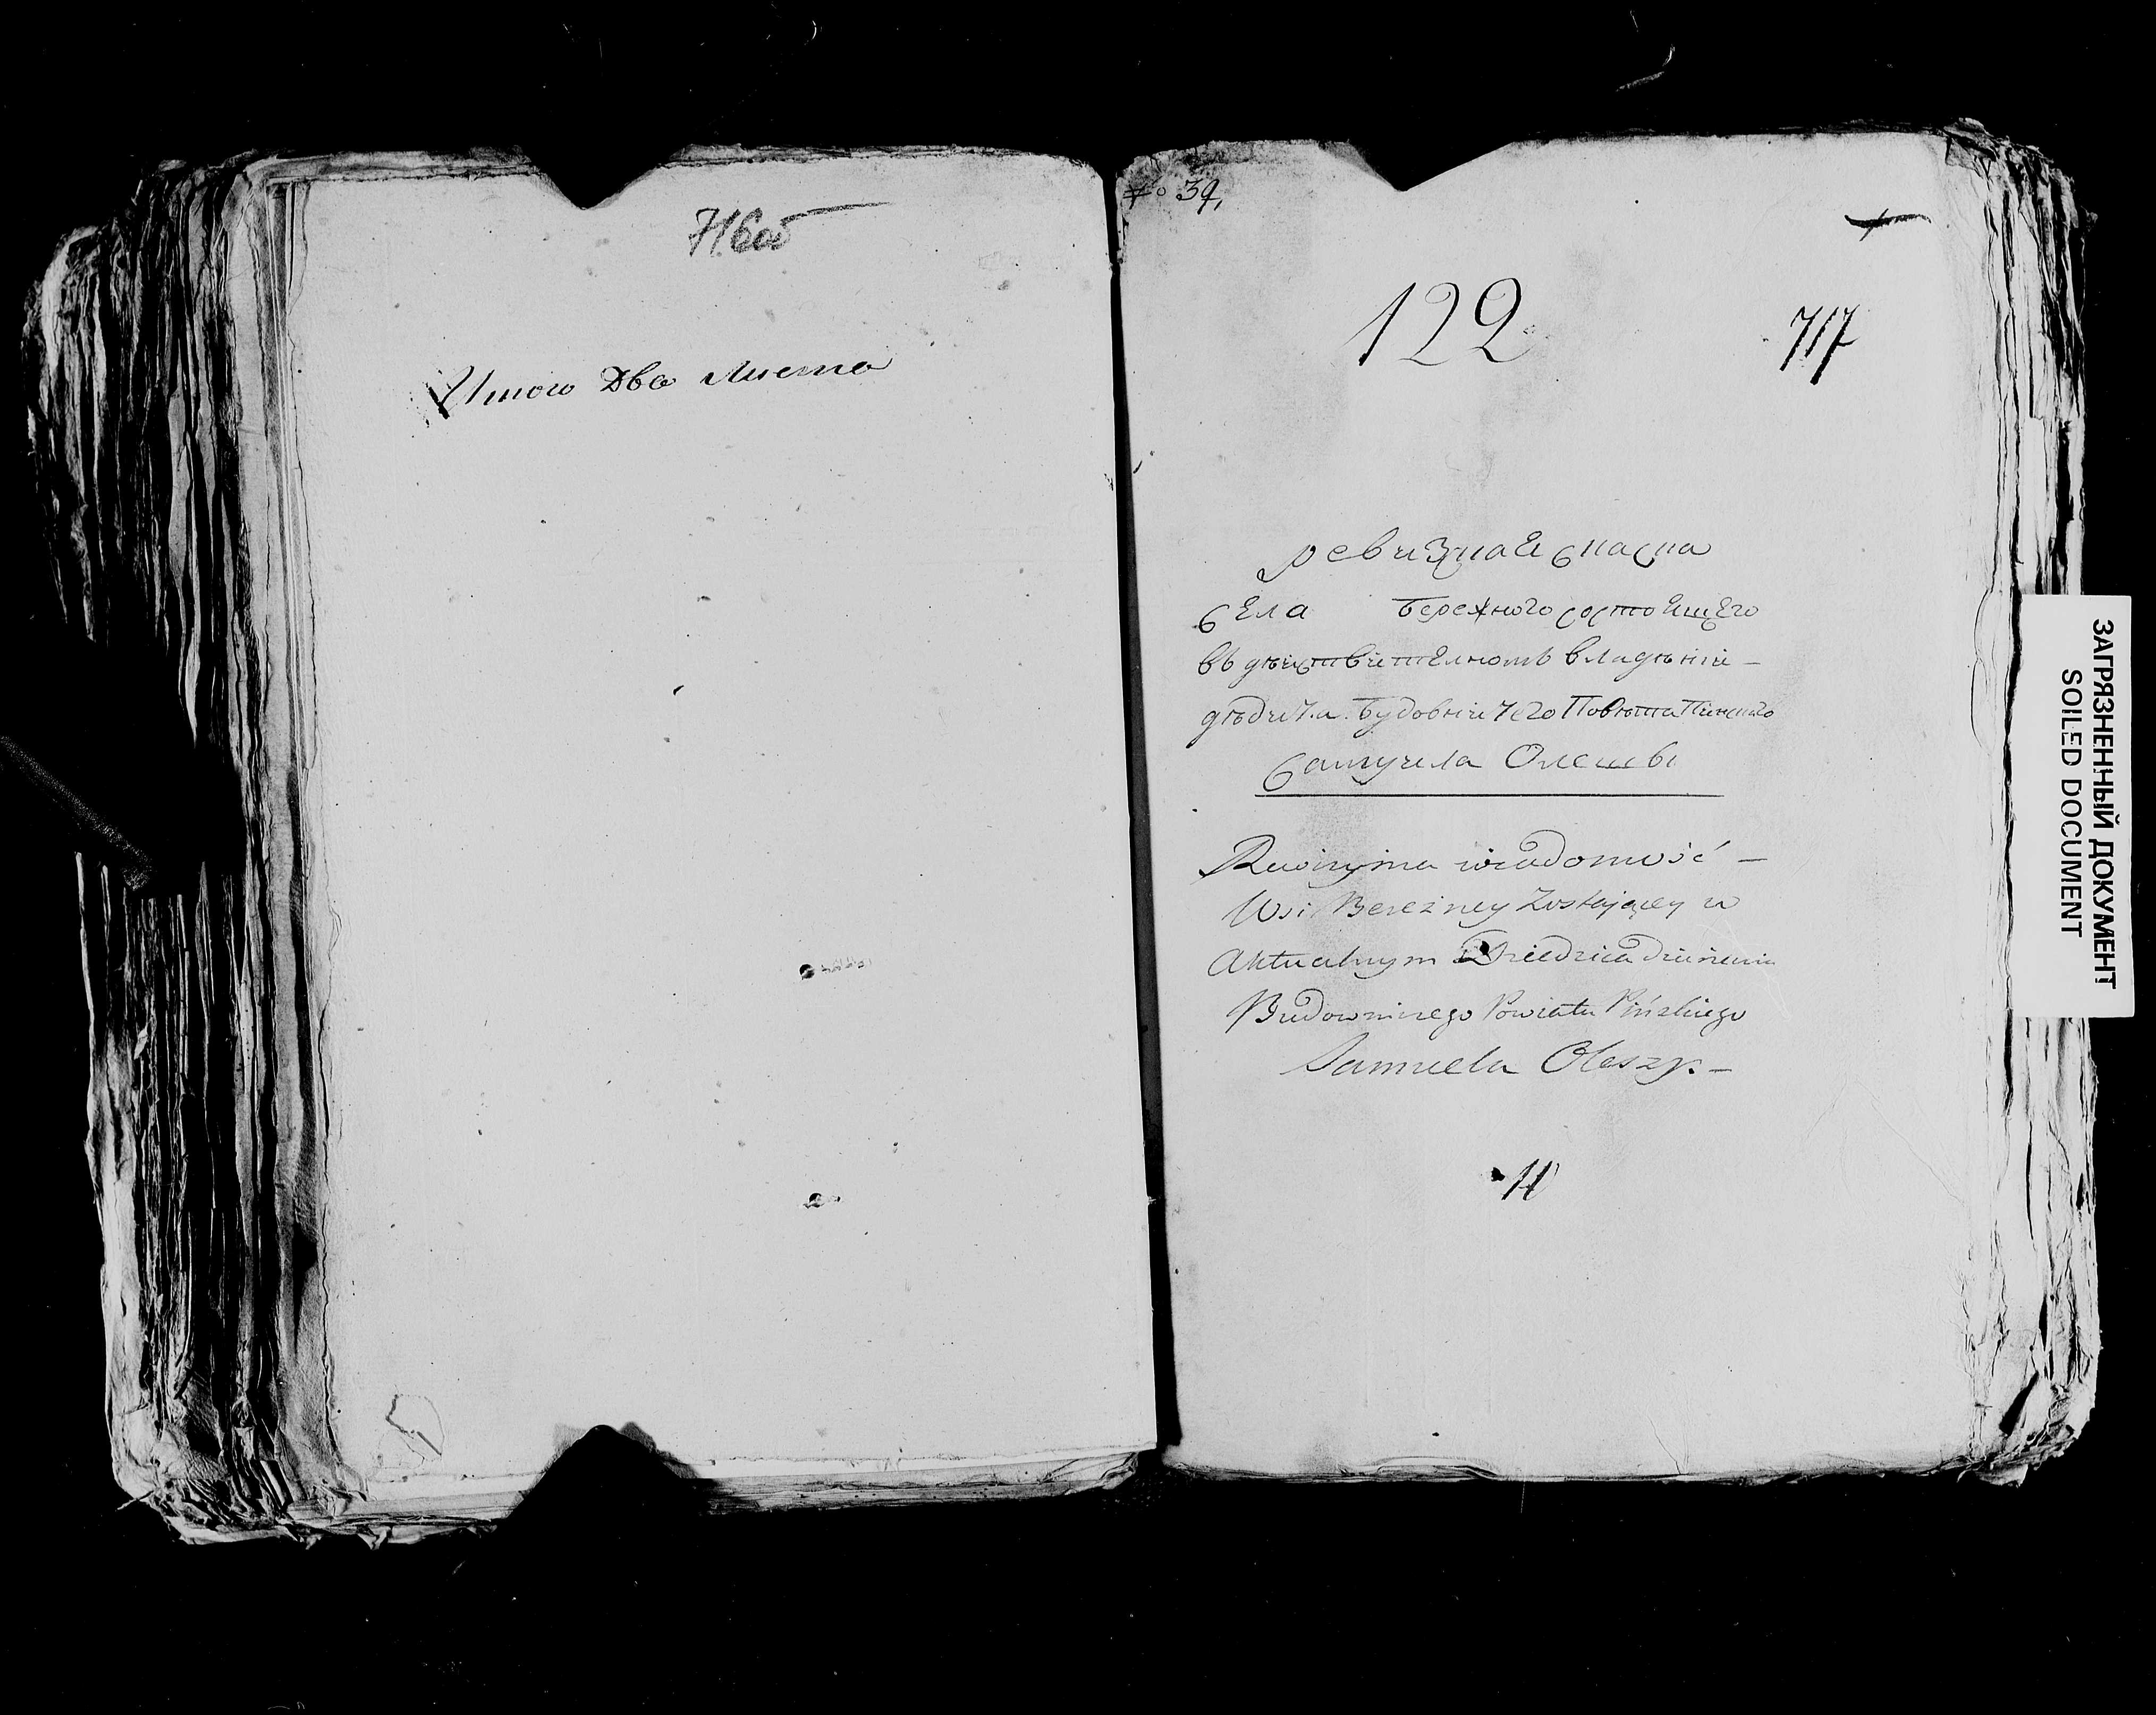 716об
Итого два листа
№ 39.
122
717
ревизная скаска
села Бережного состоящего
въ дѣйствителномъ владѣнiи –
дѣдича Будовничего Повѣта Пинского
Самуела Олешы
Rewizyina wiadomość –
Wsi Bereżney Zostającey w
Aktualnym Dziedzica dzierżeniu
Budowniczego Powiatu Pińskiego
Samuela Oleszy. –
11
ЗАГРЯЗНЕННЫЙ ДОКУМЕНТ
SOILED DOCUMENT